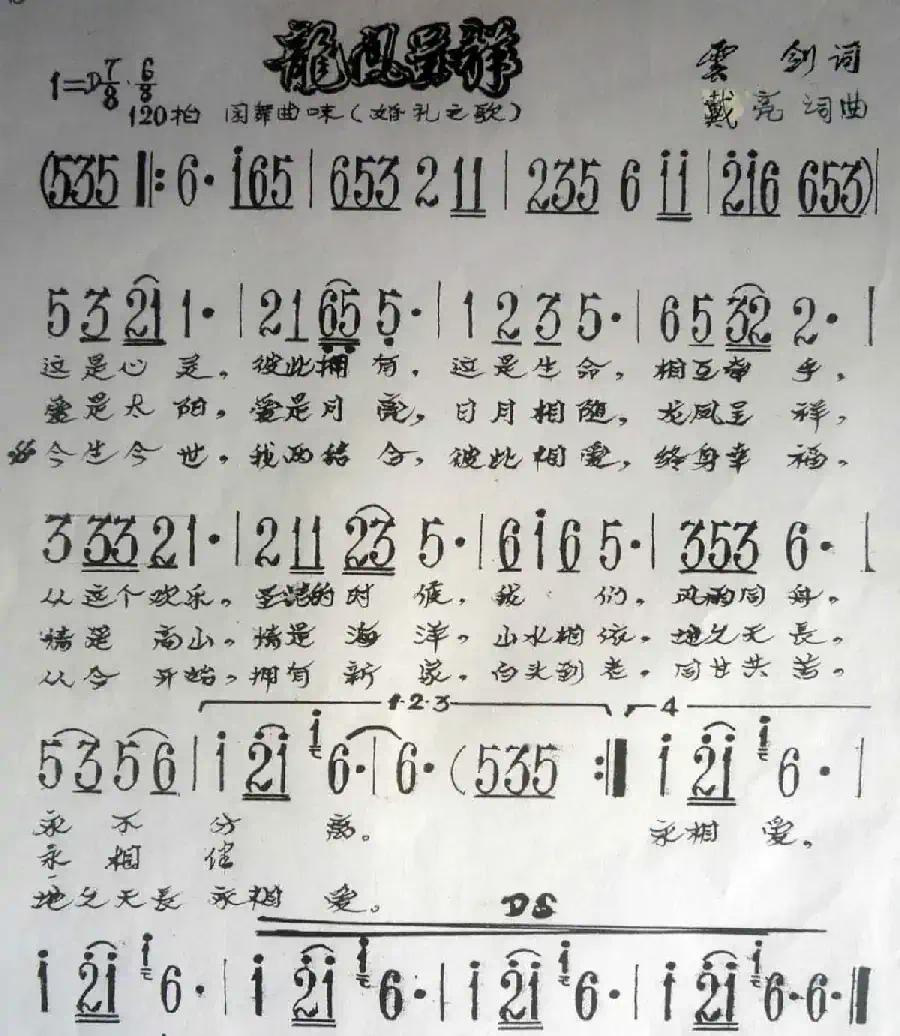 龍鳳呈祥
1=D 7/8 · 6/8
雲 剑 词
120拍 国舞曲味（婚礼之歌）
戴 亮 词曲
(535 ‖: 6· i65 | 653 2 11 | 235 6 ii | 2i6 653)|
5 3 21 1· | 21 65 5· | 1 2 3 5· | 6 5 32 2· |
这是心灵，彼此拥有，这是生命，相互牵手，
爱是太阳，爱是月亮，日月相随，龙凤呈祥，
今生今世，我两结合，彼此相爱，终身幸福。
3 33 21· | 2 11 23 5· | 6 i 6 5· | 353 6· |
从这个欢乐。圣洁的时候，我们，风雨同舟。
情是高山，情是海洋。山水相依。地久天長。
从今开始，拥有新家。白头到老，同甘共苦。
1·2·3 4
53 56 | i 2i i 6· | 6· (535 :‖ i 2i i 6· |
永不分离。 永相爱，
永相伴
地久天長永相爱。
DS
i 2i i 6· | i 2i i 6· | i 2i i 6· | i 2i i 6·6· ‖